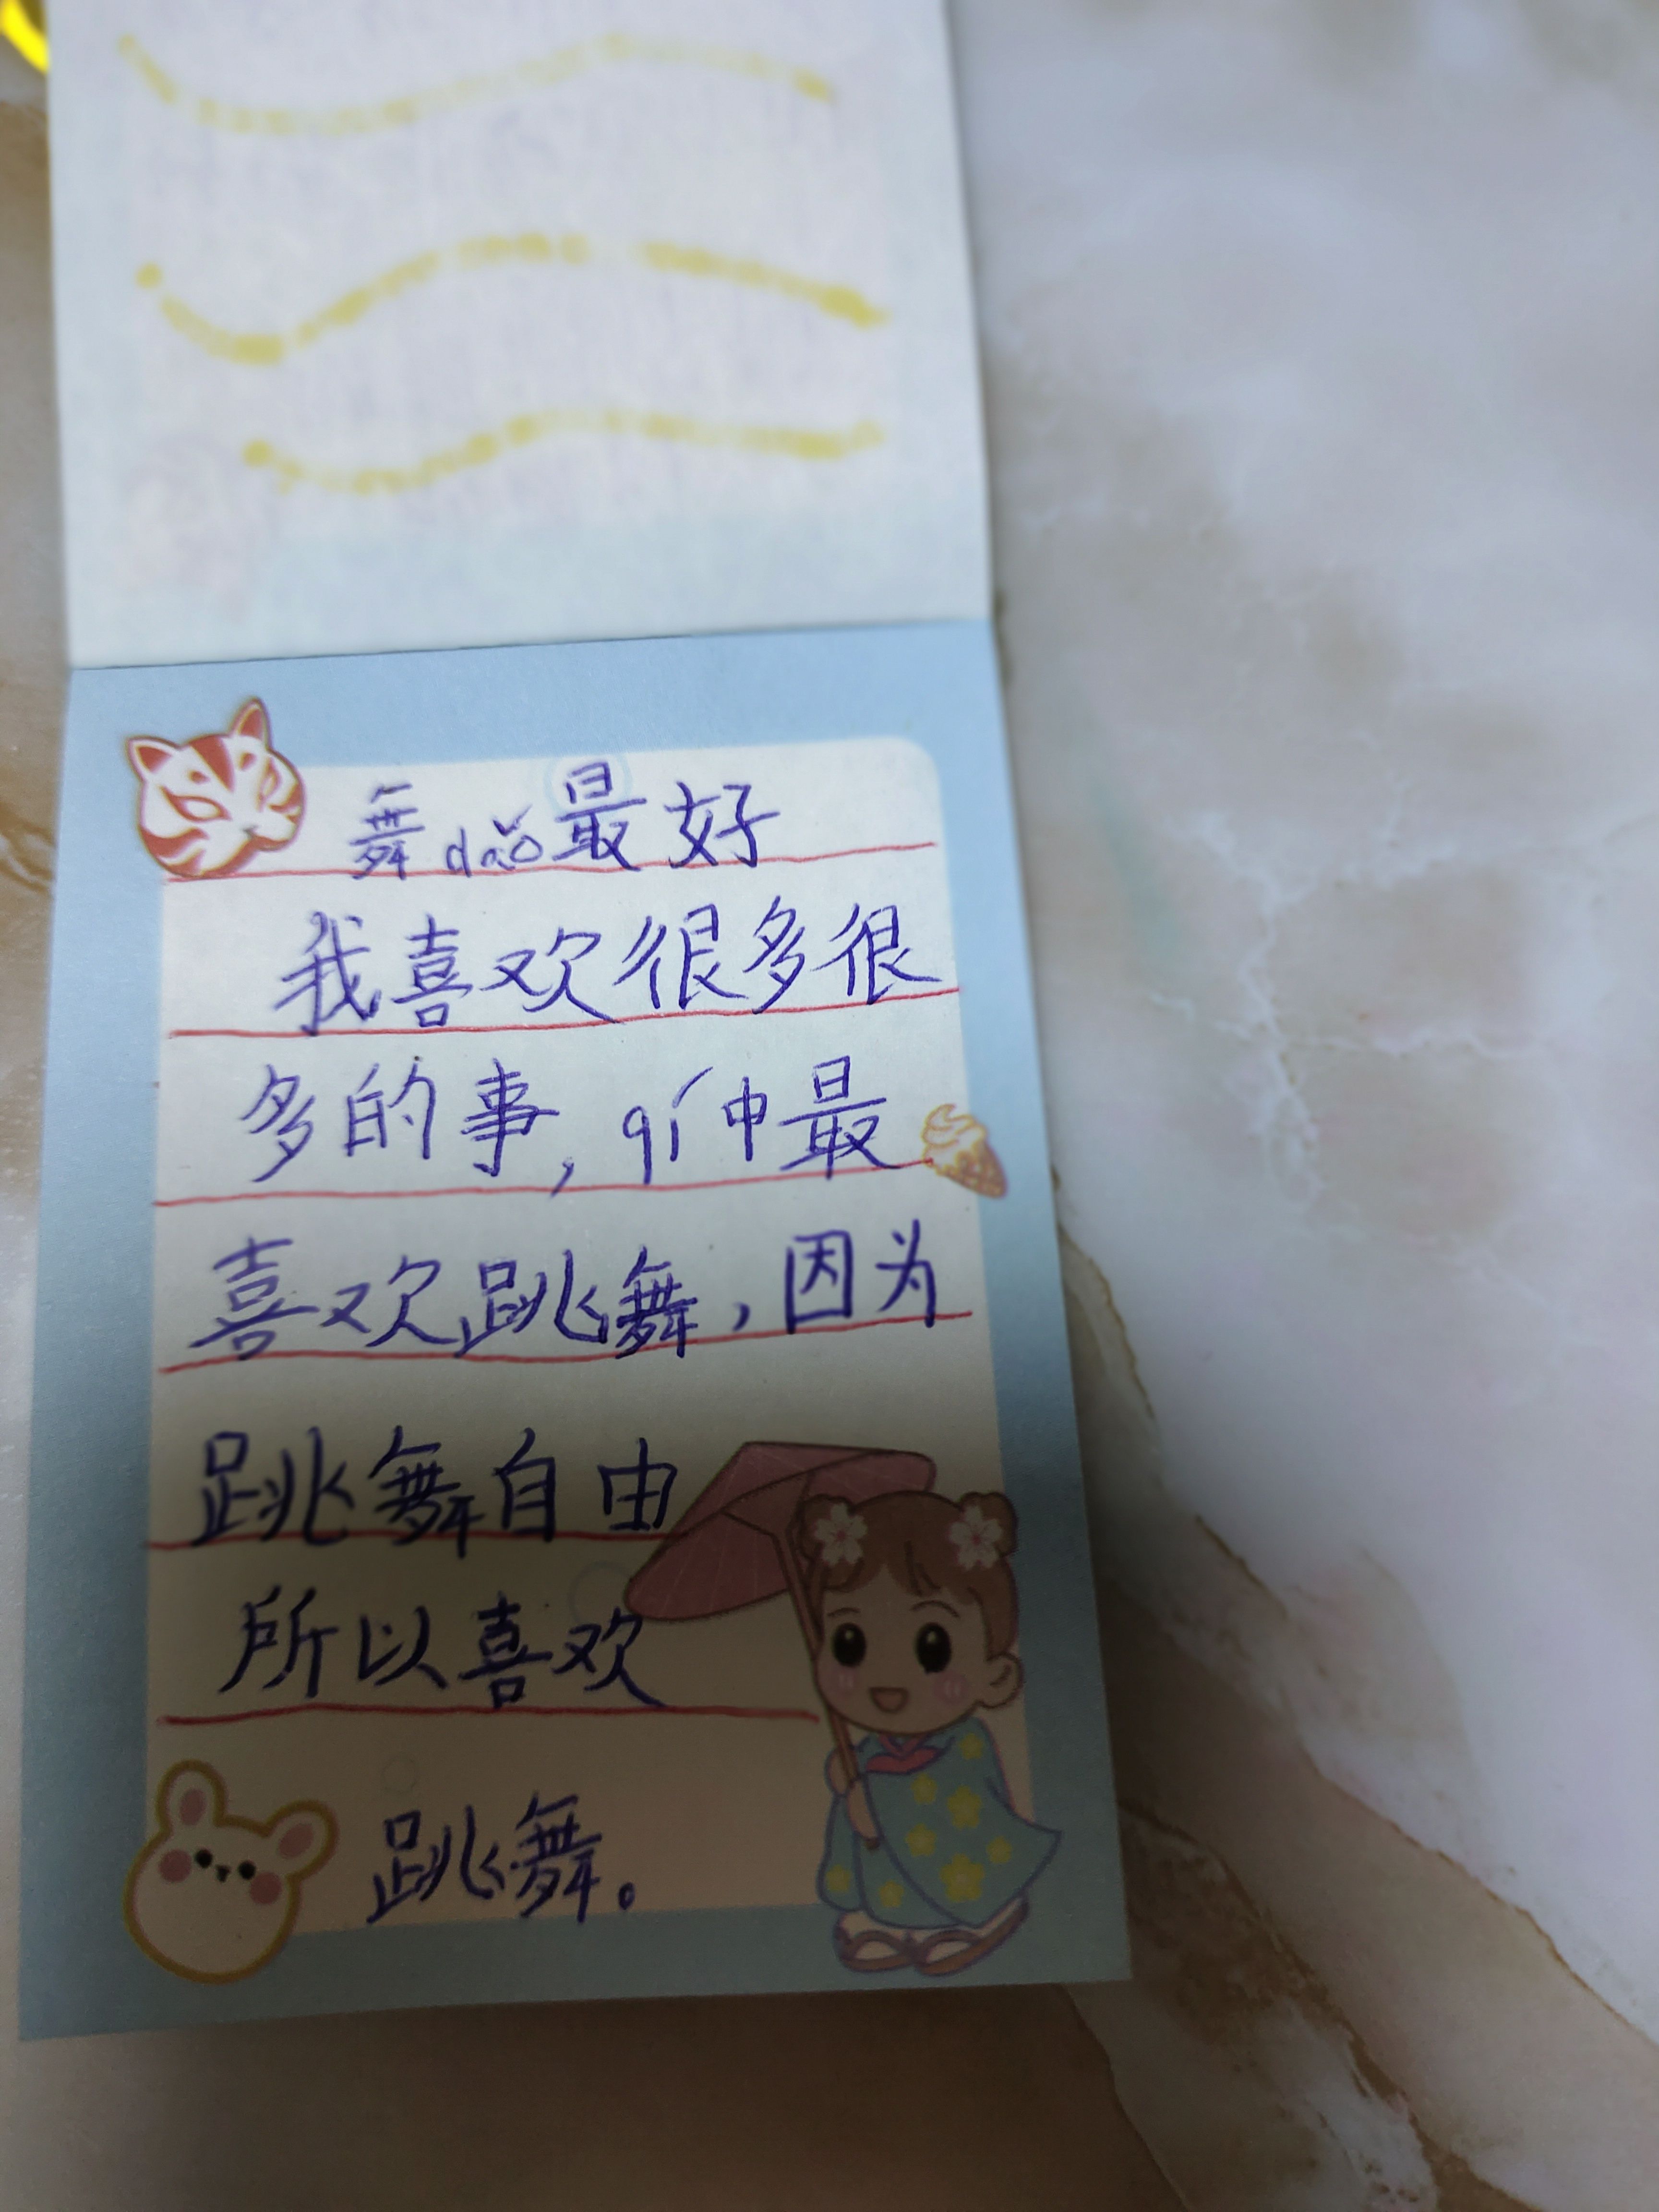 舞dǎo最好
我喜欢很多很
多的事，qí中最
喜欢跳舞，因为
跳舞自由
所以喜欢
跳舞。